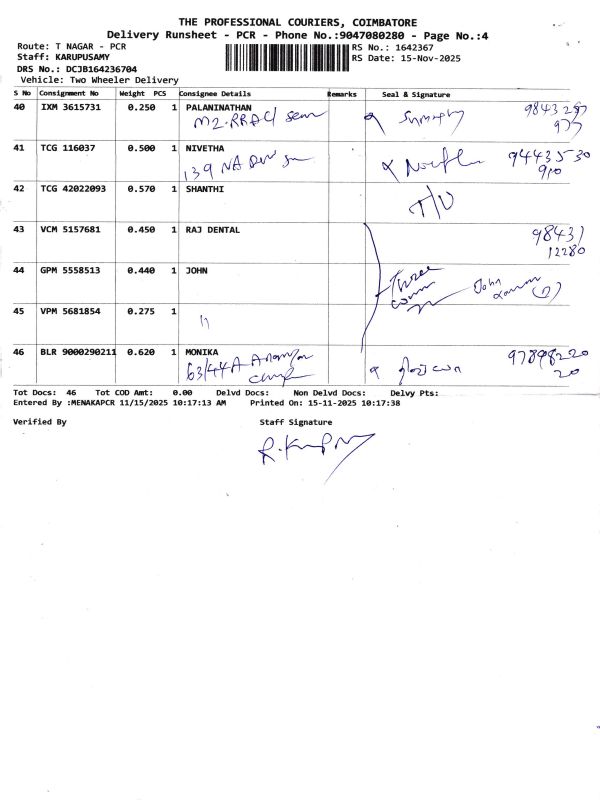 THE PROFESSIONAL COURIERS, COIMBATORE
Delivery Runsheet - PCR - Phone No.:9047080280 - Page No.:4
Route: T NAGAR - PCR
RS No.: 1642367
Staff: KARUPUSAMY
RS Date: 15-Nov-2025
DRS No.: DCJB164236704
Vehicle: Two Wheeler Delivery
S No Consignment No Weight PCS Consignee Details Remarks Seal & Signature
40 IXM 3615731 0.250 1 PALANINATHAN
41 TCG 116037 0.500 1 NIVETHA
139
42 TCG 42022093 0.570 1 SHANTHI
T/U
43 VCM 5157681 0.450 1 RAJ DENTAL 98431
12280
44 GPM 5558513 0.440 1 JOHN
Three John
45 VPM 5681854 0.275 1
46 BLR 9000290211 0.620 1 MONIKA
63/44A
Tot Docs: 46 Tot COD Amt: 0.00 Delvd Docs: Non Delvd Docs: Delvy Pts:
Entered By :MENAKAPCR 11/15/2025 10:17:13 AM Printed On: 15-11-2025 10:17:38
Verified By Staff Signature